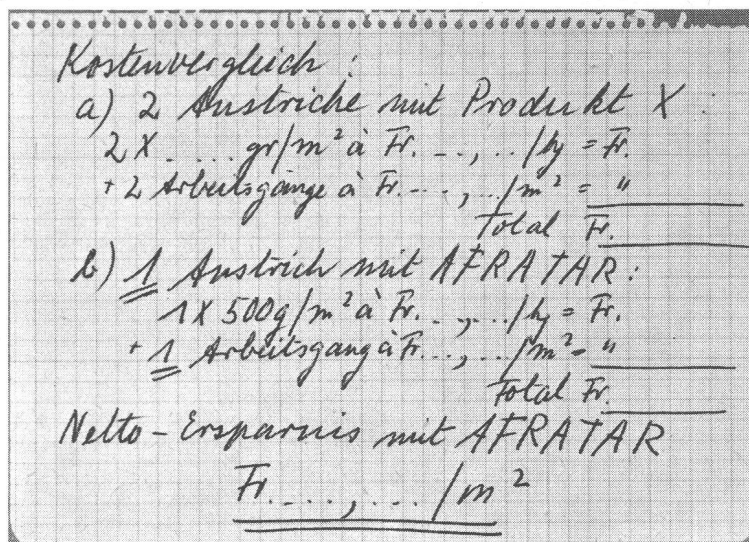 Kostenvergleich :
a) 2 Anstriche mit Produkt X :
2 X ..... gr/m² à Fr. ..., ../kg = Fr.
+ 2 Arbeitsgänge à Fr. ..., ../m² = "
Total Fr.
b) 1 Anstrich mit AFRATAR :
1 X 500g/m² à Fr. .., .../kg = Fr.
+ 1 Arbeitsgang à Fr. ..., ../m² = "
Total Fr.
Netto-Ersparnis mit AFRATAR
Fr. ...., .... /m²